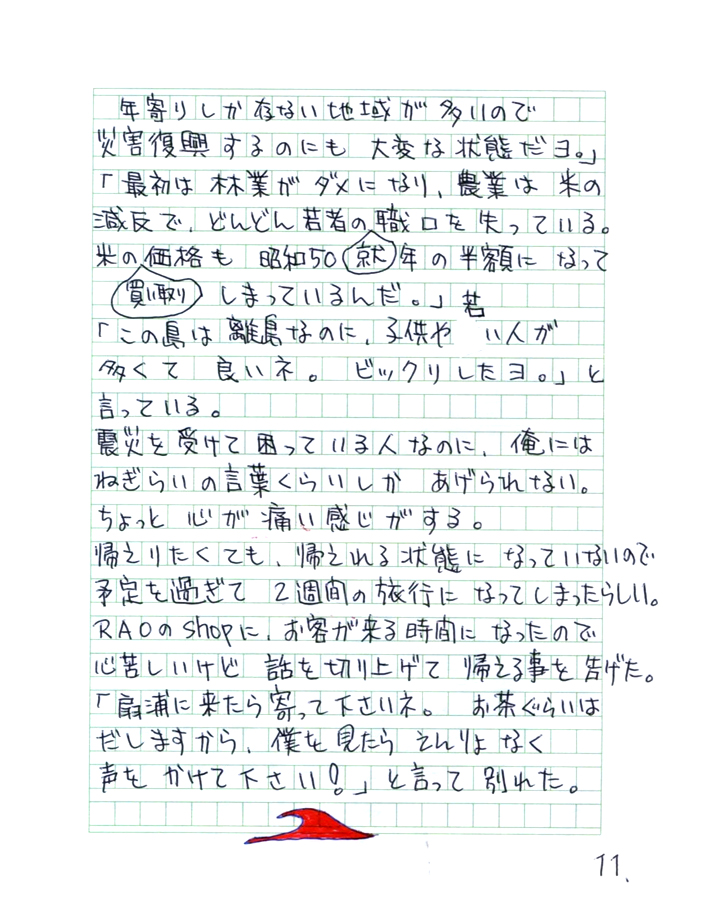 年寄りしか存ない地域が多いので
災害復興するのにも 大変な状態だヨ。」
「最初は林業がダメになり、農業は米の
減反で、どんどん若者の職口を失っている。
米の価格も 昭和50就年の半額になって
買い取り しまっているんだ。」若
「この島は離島なのに、子供や い人が
多くて 良いネ。 ビックリしたヨ。」と
言っている。
震災を受けて困っている人なのに、俺には
ねぎらいの言葉くらいしか あげられない。
ちょっと 心が痛い感じがする。
帰えりたくても、帰えれる状態になっていないので
予定を過ぎて 2週間の旅行になってしまったらしい。
RAOのshopに、お客が来る時間になったので
心苦しいけど 話を切り上げて 帰える事を告げた。
「扇浦に来たら寄って下さいネ。 お茶ぐらいは
だしますから、僕を見たら えんりょなく
声をかけて下さい!」と言って別れた。
11.